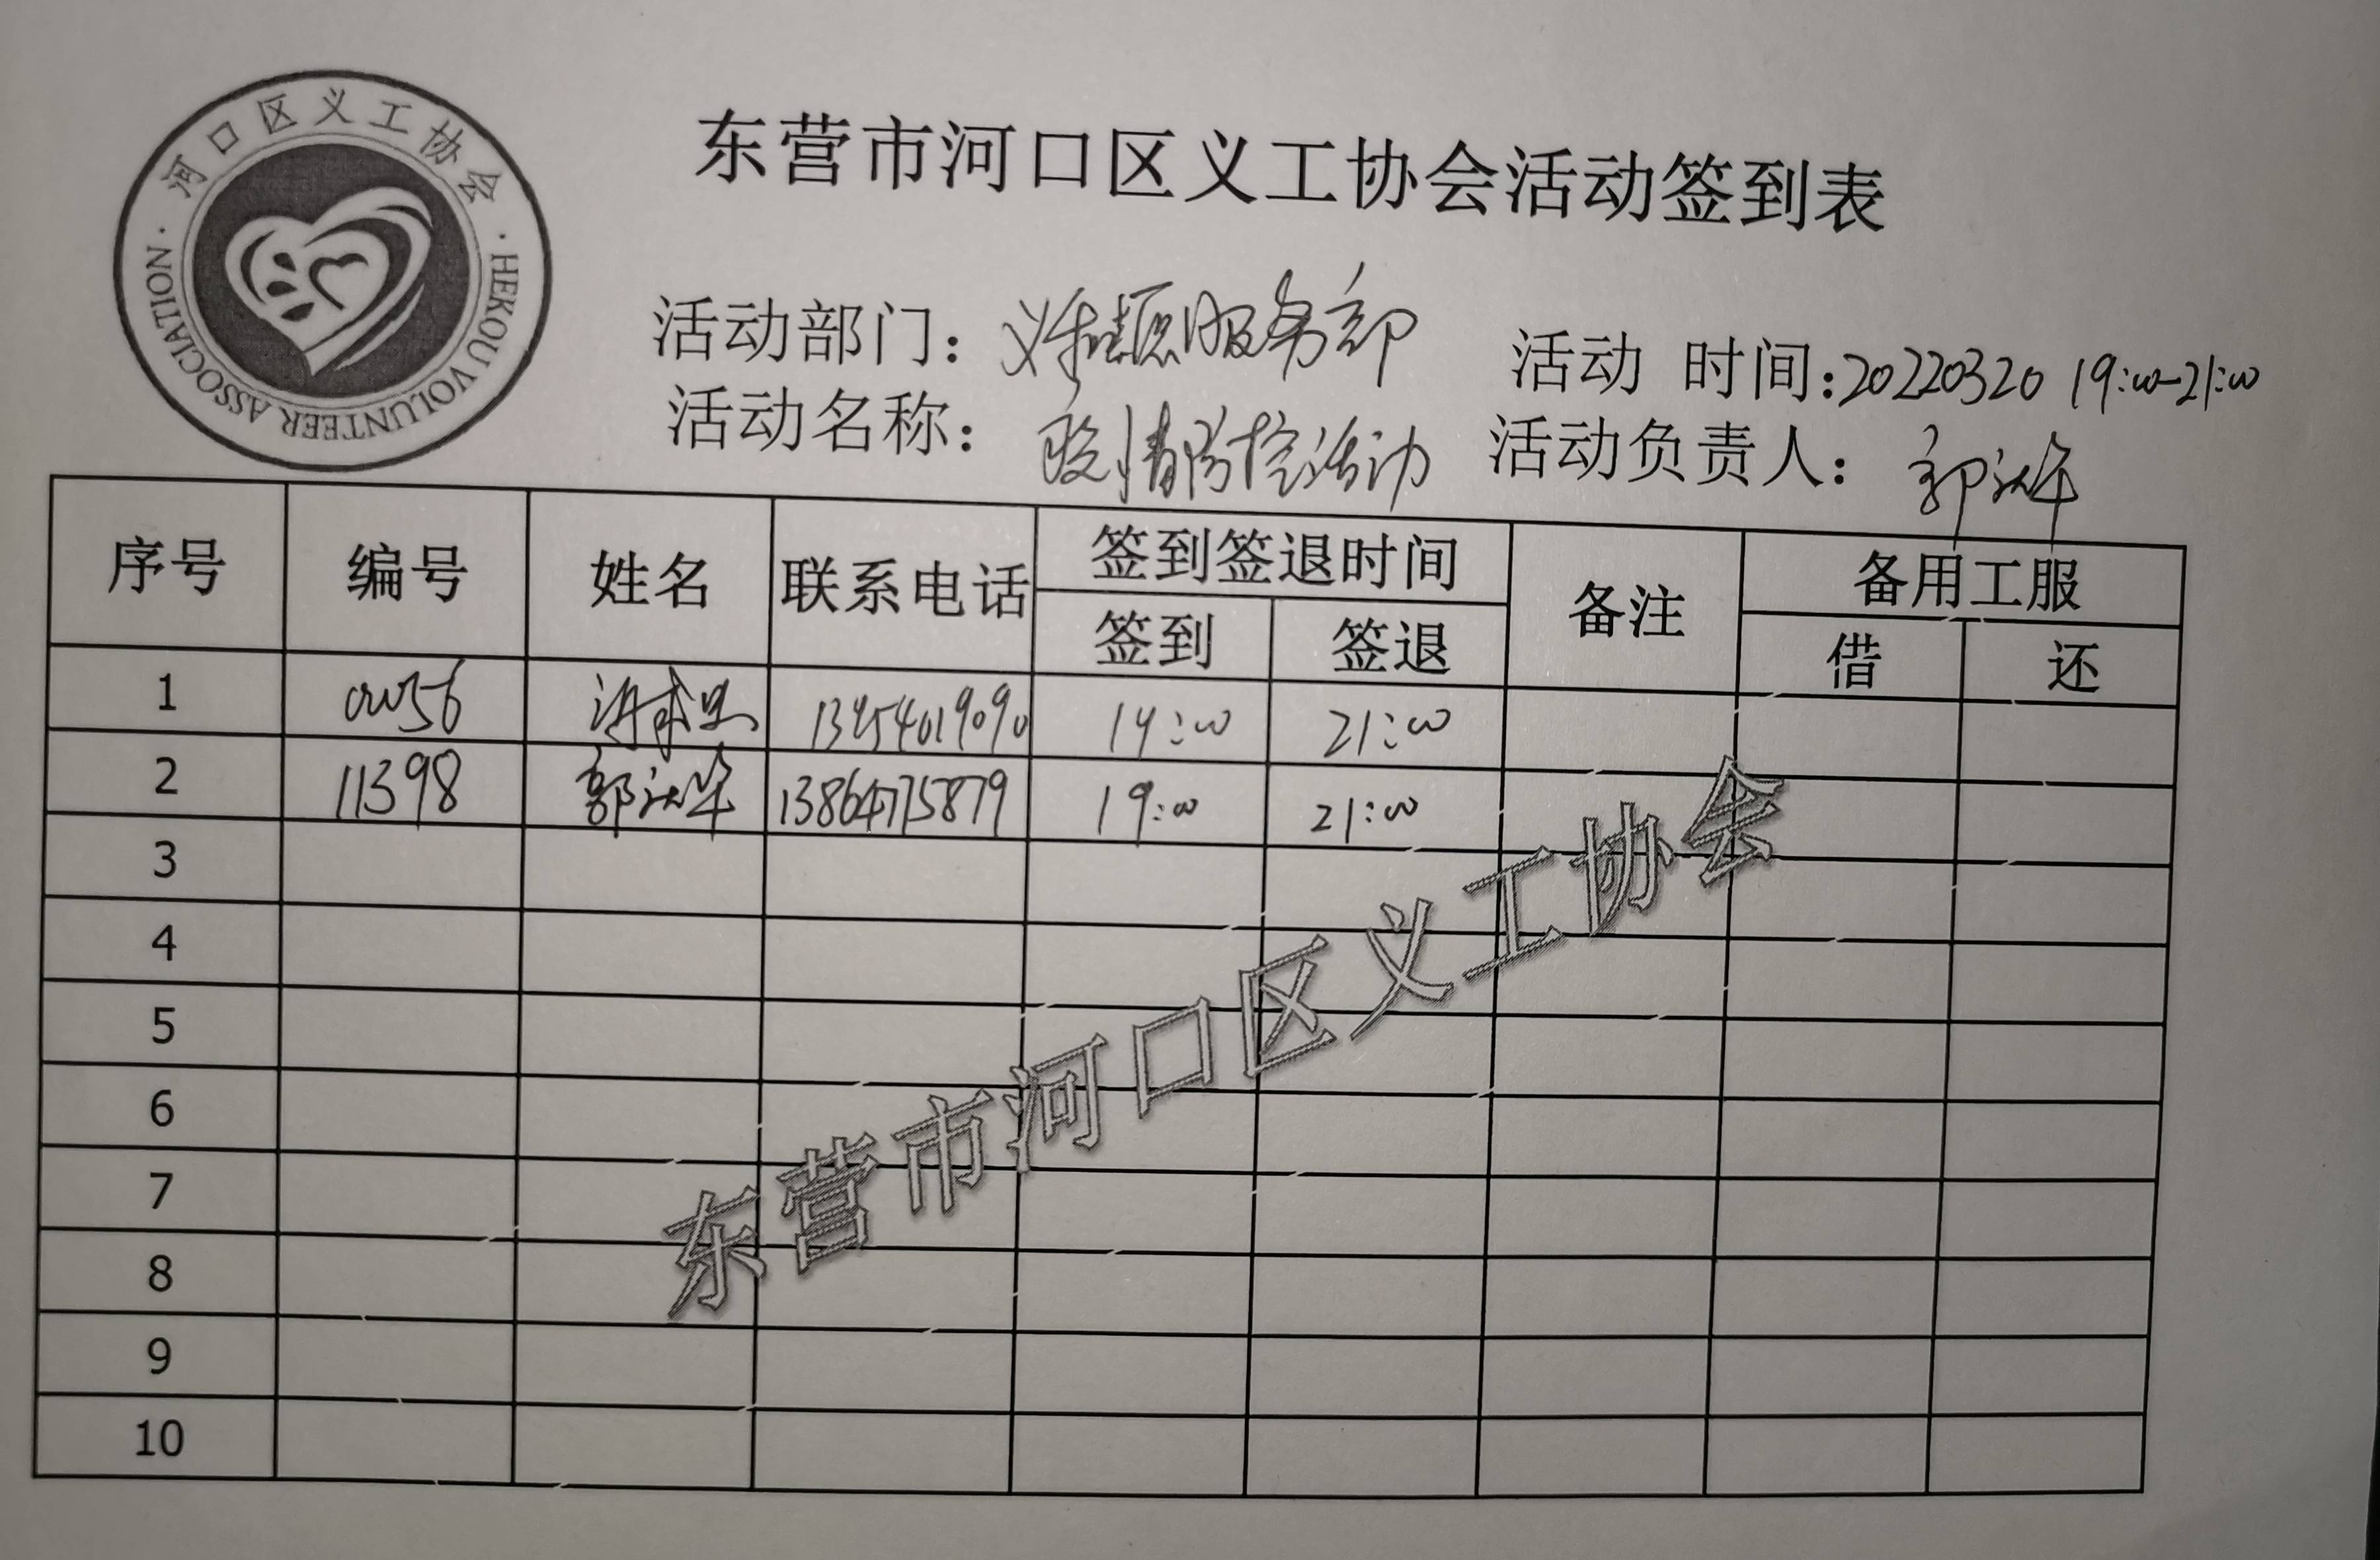 河口区义工协会
HEKOU VOLUNTEER ASSOCIATION
东营市河口区义工协会活动签到表
活动部门： 服务部 活动 时间：20220320 19:00-21:00
活动名称： 疫情防控活动 活动负责人： 郭
序号 编号 姓名 联系电话 签到签退时间 备注 备用工服
签到 签退 借 还
1 00056 21:00
2 11398 郭 13864775879 19:00 21:00
3
4
5
6
7
8
9
10
东营市河口区义工协会